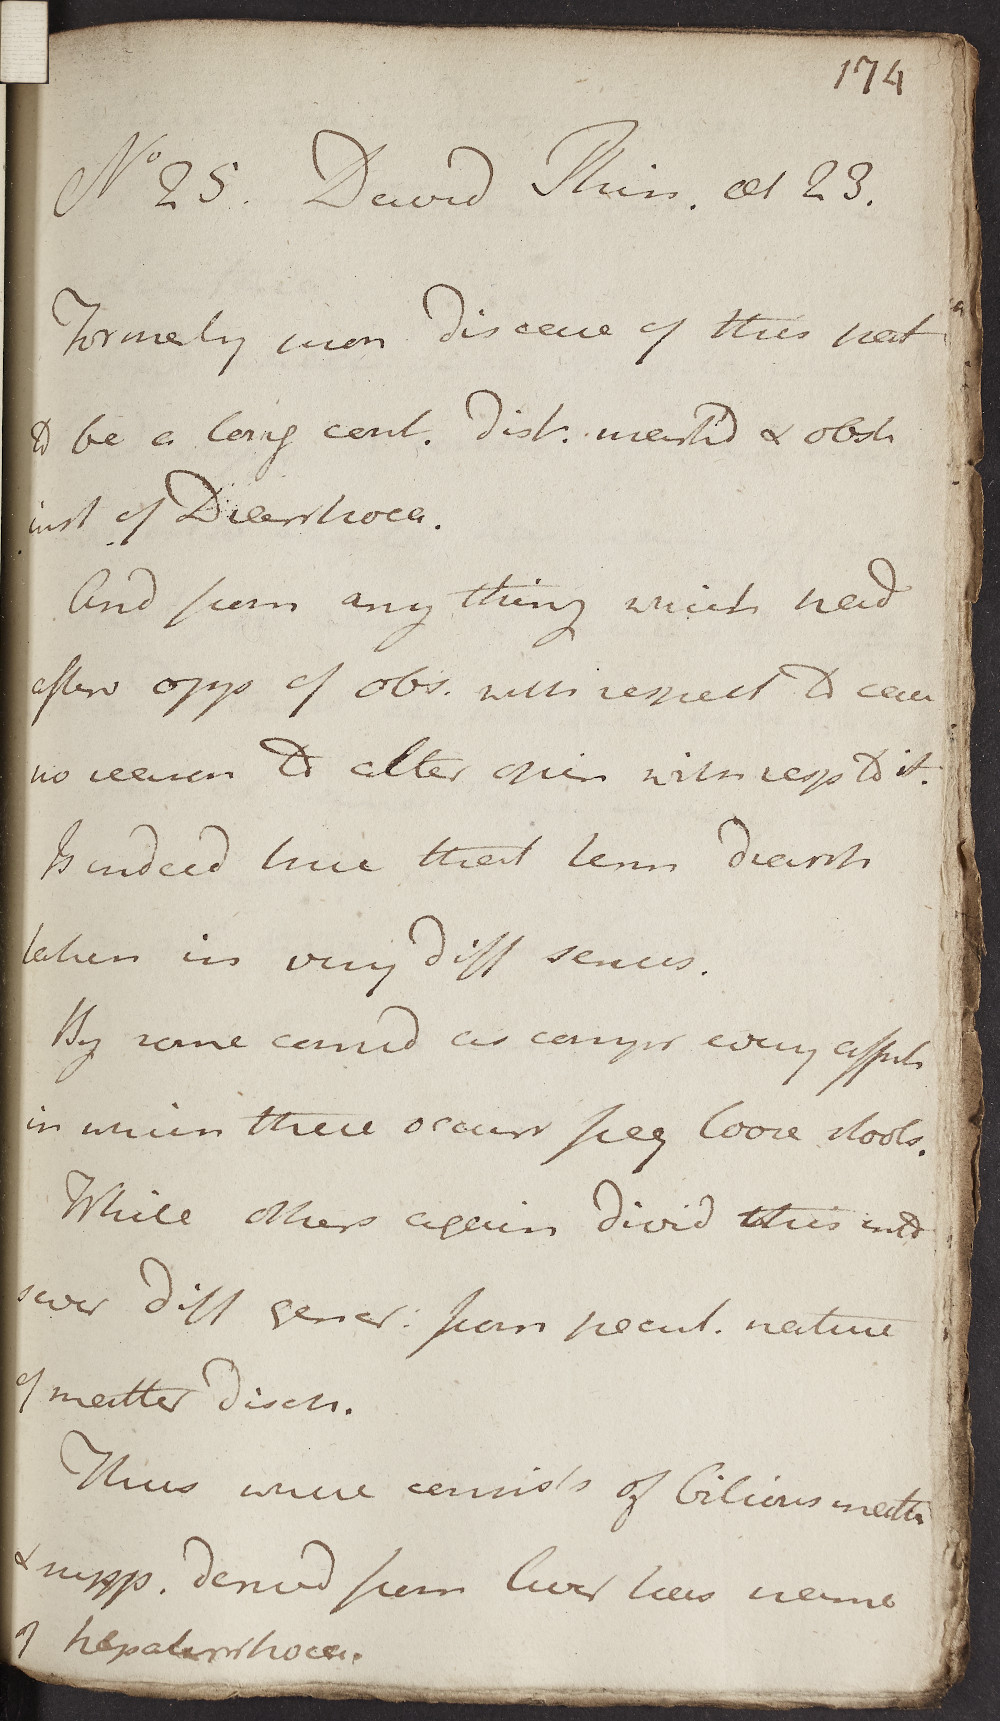 174
No 25. David Shin. aet 23.
Formerly men disease of this pat
to be a long cont. dist. mark'd & obst
inst of Diarrhoea.
And from any thing which had
afterw opps of obs. with respect to case
no reason to alter opin with resp to it.
Is indeed true that term diarrh
taken in very diff senses.
By some consid as compr every affect
in which there occurr freq loose stools.
While others again divid this into
sever diff gener: from pecul. nature
of matter disch.
Thus where consists of bilious matter
& supp. derived from liver has name
of hepatirrhoea.